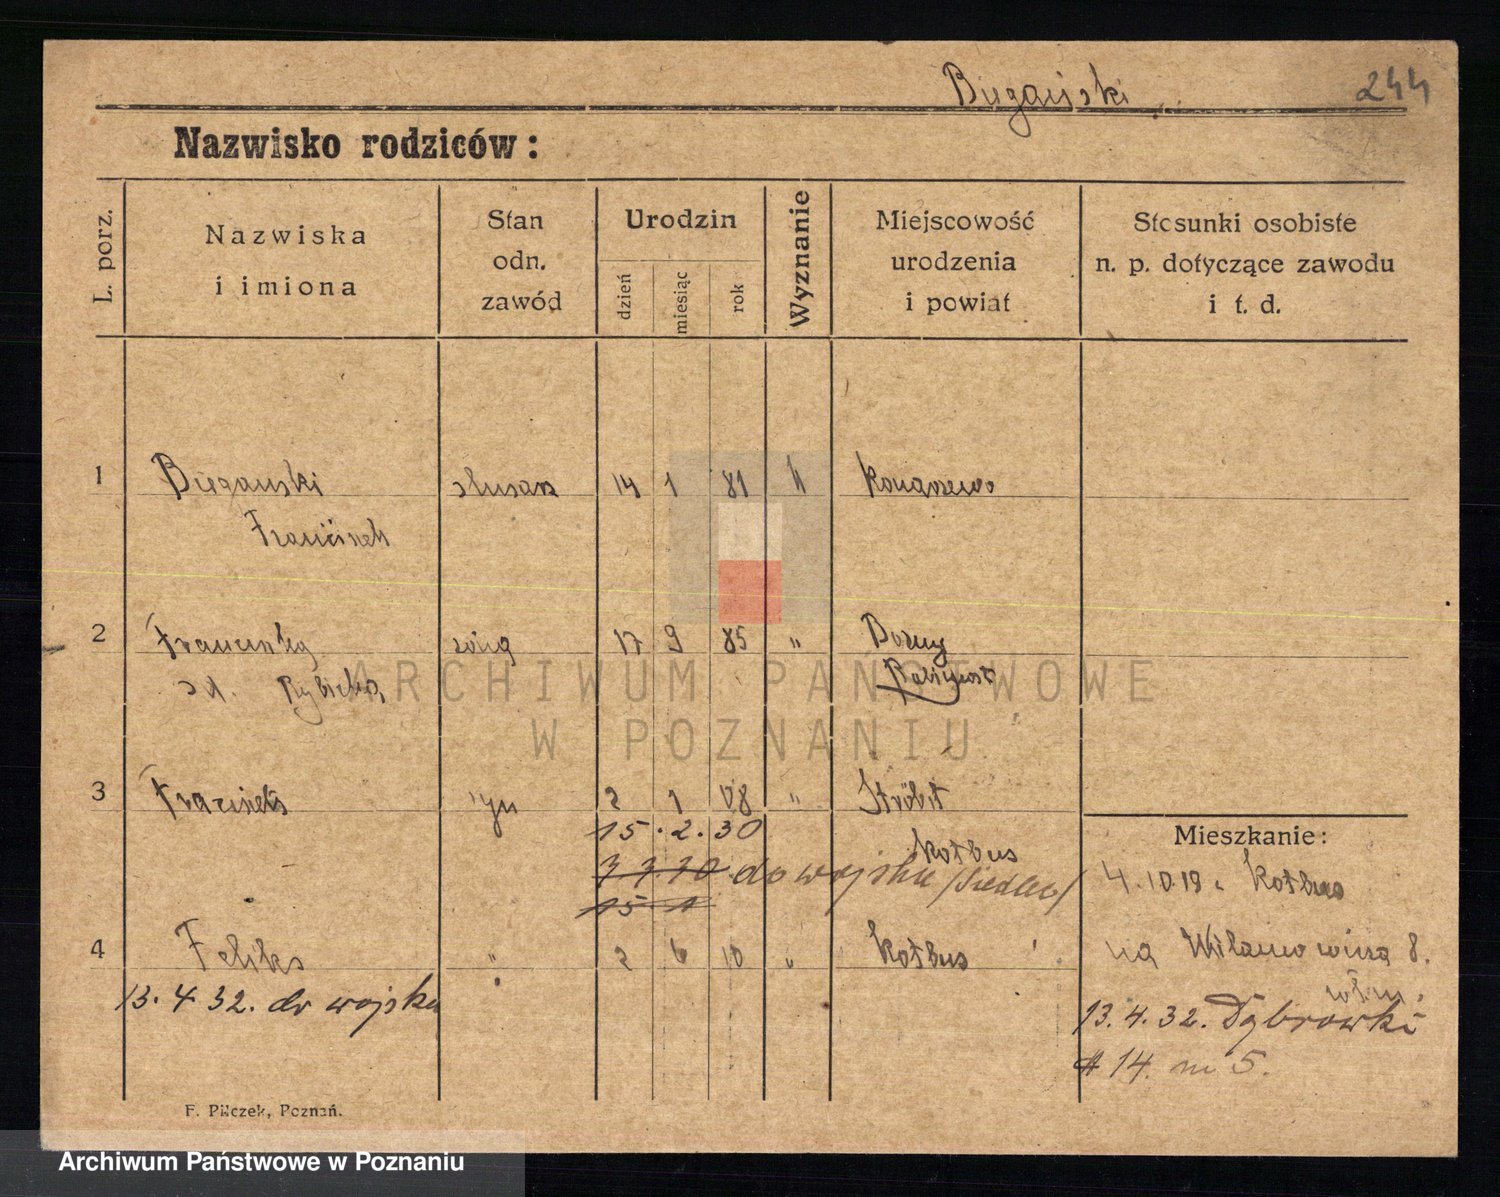 Biegański 244
Nazwisko rodziców:
L. porz.
Nazwiska
i imiona
Stan
odn.
zawód
Urodzin
dzień
miesiąc
rok
Wyznanie
Miejscowość
urodzenia
i powiat
Stosunki osobiste
n. p. dotyczące zawodu
i t. d.
1 Biegański ślusarz 14 1 81 k Konarzewo
Franciszek
2 Franciszka żona 17 9 85 "
z d. Rybicka
3 Franciszek syn 2 1 08 " Ströbit
Kotbus
15.2.30
3 3 30 do wojska /Siedlec/
15 1
Mieszkanie:
4.10.19 z Kotbus
4 Feliks " 2 6 10 " Kotbus
na 8.
13.4.32. do wojska
13.4.32. Dąbrówki
14. m 5.
F. Pilczek, Poznań.
ARCHIWUM PAŃSTWOWE
W POZNANIU
Archiwum Państwowe w Poznaniu